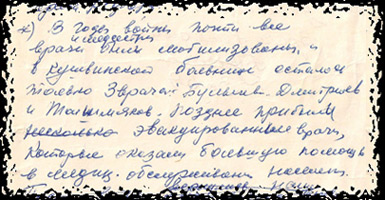 х) В годы войны почти все
врачи и медсестры были мобилизованы, и
в Кушвинской больнице осталось
только 3 врача: Дмитриев
и . Позднее прибыли
несколько эвакуированных врачей,
которые оказали большую помощь
в медиц. обслуживании населен.